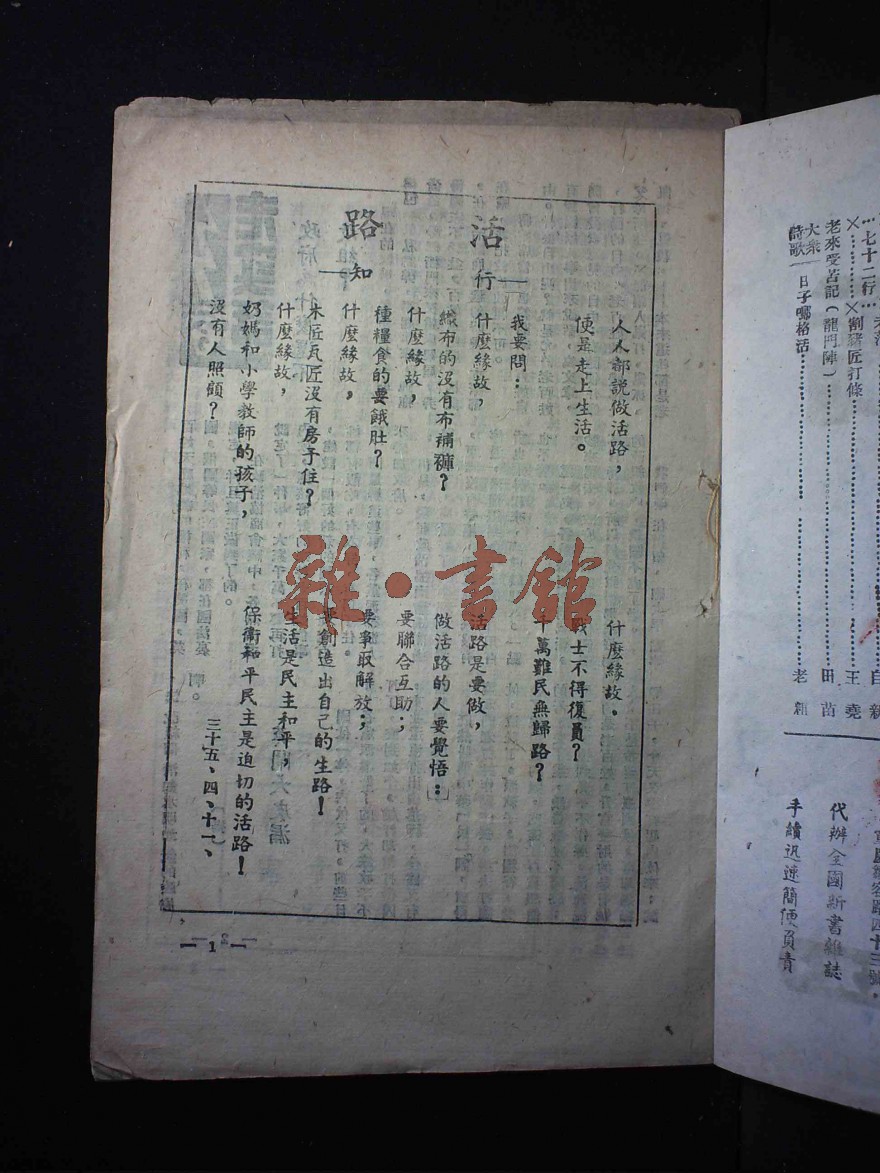 活路
——行知——
人人都説做活路，
便是走上生活。
我要問：
什麼緣故，
織布的沒有布補褲？
什麼緣故，
種糧食的要餓肚？
什麼緣故，
木匠瓦匠沒有房子住？
什麼緣故，
奶媽和小學教師的孩子，
沒有人照顧？
什麼緣故。
戰士不得復員？
千萬難民無歸路？
活路是要做，
做活路的人要覺悟：
要聯合互助；
要爭取解放；
要創造出自己的生路！
生活是民主和平，
保衛和平民主是迫切的活路！
三十五、四、十一、
—1—
雜·書館
…七十二行…
×…×劁猪匠打條…王堯
老來受苦記（龍門陣）…田苗
大衆詩歌｜日子哪格活…老粗
代辦全國新書雜誌
手續迅速簡便負責